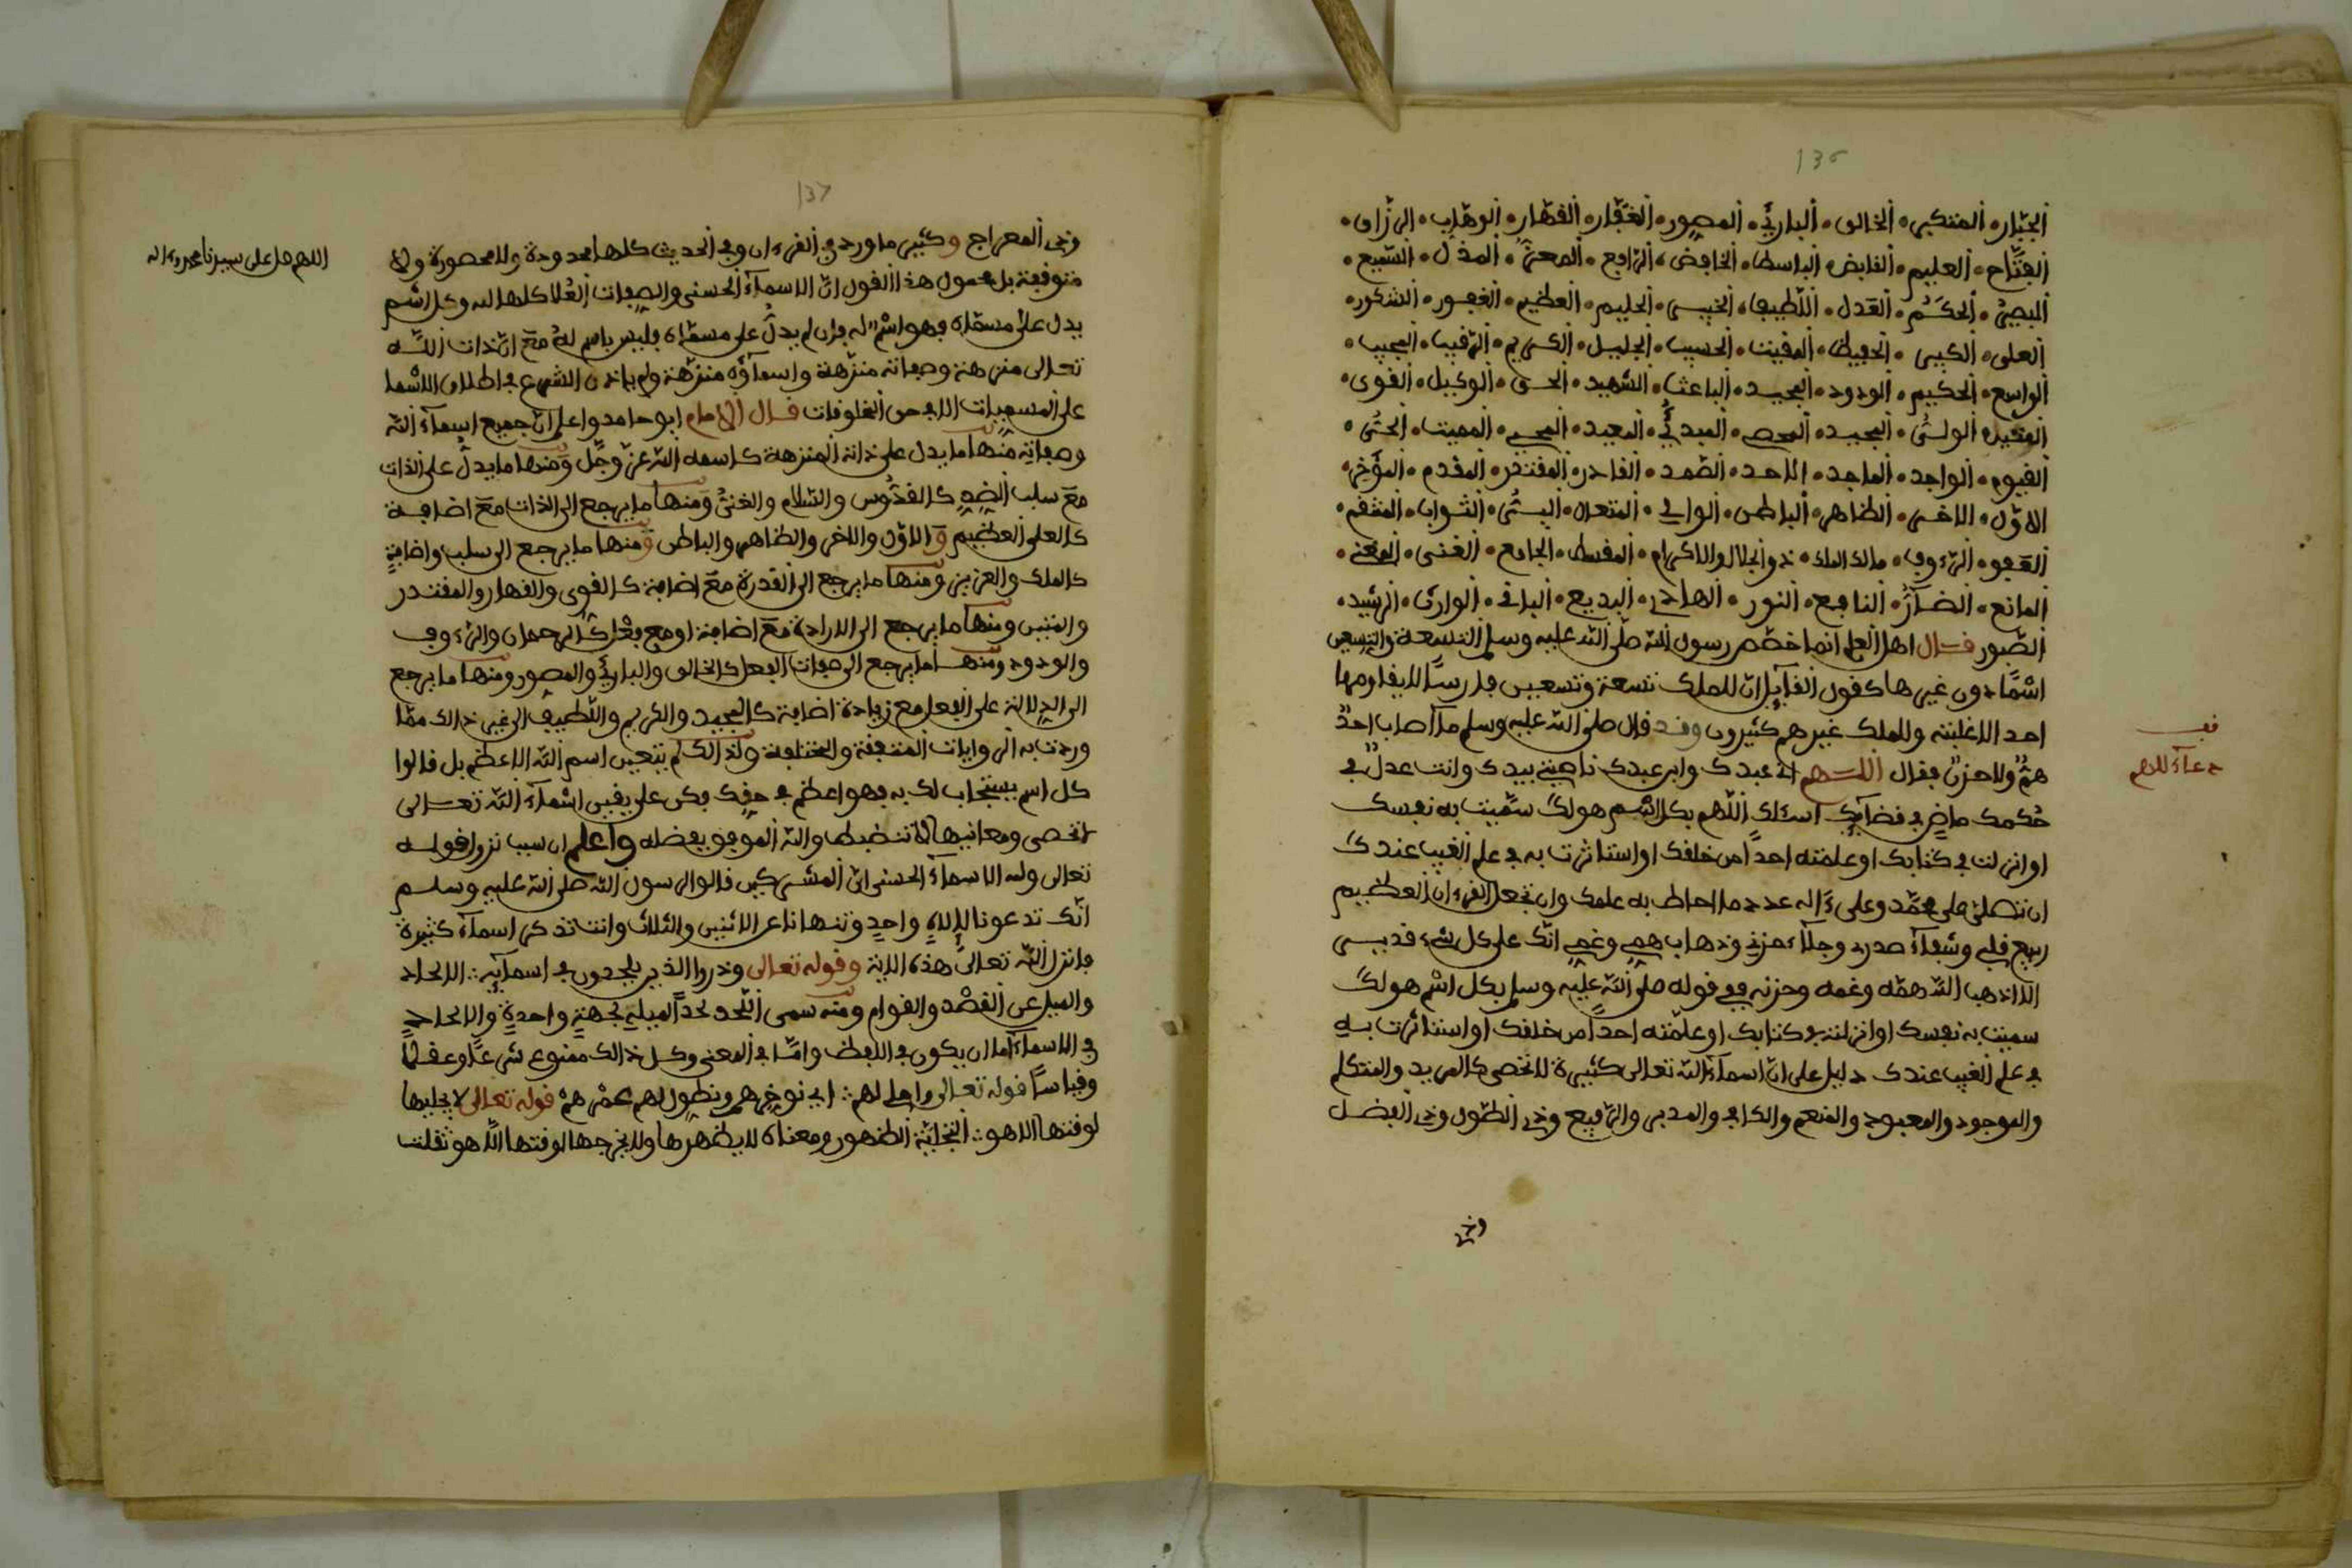 136
الجبّار • المتكبر • الخالق • البارئ • المصور • الغفّار • القهّار • الوهّاب • الرزاق •
الفتّاح • العليم • القابض • الباسط • الخافض • الرّافع • المعزّ • المذل • السّميع •
البصير • الحكَم • العَدل • اللّطيف • الخبير • الحليم • العظيم • الغفور • الشكور •
العلى • الكبير • الحفيظ • المقيت • الحسيب • الجليل • الكريم • الرّقيب • المجيب •
الواسع • الحكيم • الودود • المجيد • الباعث • الشّهيد • الحق • الوكيل • القوى •
المتين • الولىّ • الحميد • المحصي • المبدئ • المعيد • المحيي • المميت • الحىّ •
القيوم • الواجد • الماجد • الاحد • الصّمد • القادر • المقتدر • المقدم • المؤخر •
الاوّل • الاخر • الظاهر • الباطن • الوالي • المتعال • البرّ • التواب • المنتقم •
العَفو • الرّءوف • مالك الملك • ذو الجلال والاكرام • المقسط • الجامع • الغنى • المغنى •
المانع • الضآرّ • النافع • النور • الهادي • البديع • الباقى • الوارث • الرّشيد •
الصّبور قال اهل العلم انما خصّص رسول الله صلّى الله عليه وسلم التسعة والتسعين
اسمًا دون غيرها كقول القآيل انّ للملك تسعة وتسعين فارسًا لا يقاومها
احد الا غلبته وللملك غيرهم كثيرون وقد قال صلى الله عليه وسلم ما أصاب احدٌ
همٌّ ولا حزنٌ فقال اللهم انّي عبدك وابن عبدك ناصيتي بيدك وانت عدلٌ في
حُكمك ماضٍ في قضآيك اسئلك اللّهم بكل اسم هو لك سمّيت به نفسك
او انزلت في كتابك او علمته احداً من خلقك او استاثرت به في علم الغيب عندك
ان تصلّى على محمّد وعلى ءاله عدد ما احاط به علمك وان تجعل القرءان العظيم
ربيع قلبي وشفآء صدري وجلآء حزني وذهاب همي وغمي انّك على كل شيء قدير
الا اذهب الله همّه وغمه وحزنه ففي قوله صلّى الله عليه وسلم بكل اسم هو لك
سميت به نفسك او انزلته في كتابك او علّمته احداً من خلقك او استاثرت به
في علم الغيب عندك دليل على انّ اسمآء الله تعالى كثيرة لا تحصى كالمريد والمتكلم
والموجود والمعبود والمنعم والكافي والمدبر والرّفيع وذي الطّول وذي الفضل
وذي
قف
دعآء للهم
137
وذى المعراج وكثير ما ورد في القرءان وفي الحديث كلها محدودة ولا محصورة ولا
متوقفة بل محمول هذا القول انّ الاسمآء الحسنى والصفات العُلا كلها لله وكل اسم
يدل على مسمّاه فهو اسم له فان لم يدلّ على مسمّاه فليس باسم لهُ معَ انّ ذات اللّه
تعالى منزهة وصفاته منزّهة واسمآؤه منزّهة ولم ياذن الشرع في اطلاق الاسما
على المسميات الا في حق المخلوقات قال الامام ابو حامد واعلم انّ جميع اسمآء الله
وصفاته منها ما يدل على ذاته المنزهة كاسمه الله عزّ وجلّ ومنها ما يدلّ على الذات
معَ سلب الضدِ كالقدّوس والسّلام والغنىّ ومنها ما يرجع الى الذات معَ اضافة
كالعلى العظيم والاوّل والاخر والظاهر والباطن ومنها ما يرجع الى سلب واضافةٍ
كالملك والعزيز ومنها ما يرجع الى القدرة معَ اضافة كالقوى والقهار والمقتدر
والمتين ومنها ما يرجع الى الارادة معَ اضافة او مع فعل كالرحمان والرّءوف
والودود ومنها ما يرجع الى صفات الفعل كالخالق والبارئ والمصور ومنها ما يرجع
الى الدلالة على الفعل مع زيادة اضافة كالمجيد والكريم واللّطيف الى غير ذالك ممّا
وردت به الروايات المتفقة والمختلفة ولذالك لم يتعين اسم الله الاعظم بل قالوا
كل اسم يستجاب لك به فهو اعظم في حقك فكن على يقين اسمآء الله تعالى
لا تحصى ومعانيها لا تنضبط والله الموفق بفضله واعلم ان سبب نزول قوله
تعالى ولله الاسمآء الحسنى انّ المشركين قالوا لرسول الله صلى الله عليه وسلم
انّك تدعونا لإلاهٍ واحدٍ وتنهانا عن الاثنين والثلاث وانت تذكر اسمآء كثيرة
فانزل اللّه تعالى هذه الاية وقوله تعالى وذروا الذين يلحدون في اسمآيه ∴ الالحاد
والميل عن القصد والقوام ومنه سمى اللّحد لحداً لميله لجهةٍ واحدةٍ والالحاد
في الاسمآء اما ان يكون في اللفظ وامّا في المعنى وكل ذالك ممنوع شرعًا وعقلًا
وقياساً قوله تعالى واملي لهم ∴ اي نوخرهم ونطول لهم عمرهم قوله تعالى لا يجليها
لوقتها الا هو ∴ التجلّية الظهور ومعناه لا يظهرها ولا يخرجها لوقتها الّا هو ثقلت
اللهم صل على سيدنا محمد وءاله